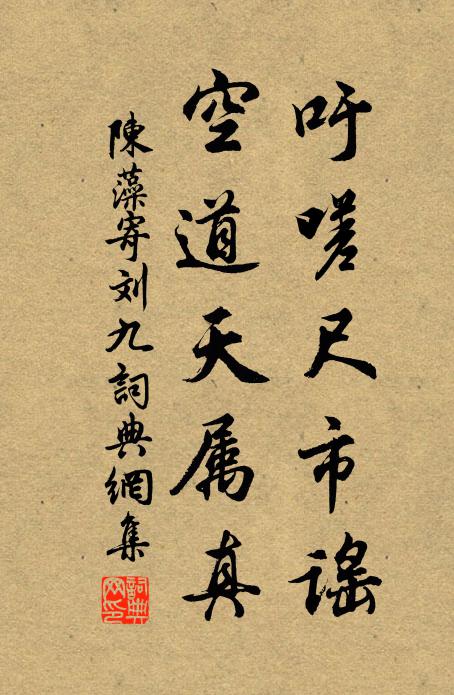 吁嗟尺市謠
空道天属真
陳藻寄刘九詞典網集
詞典网印